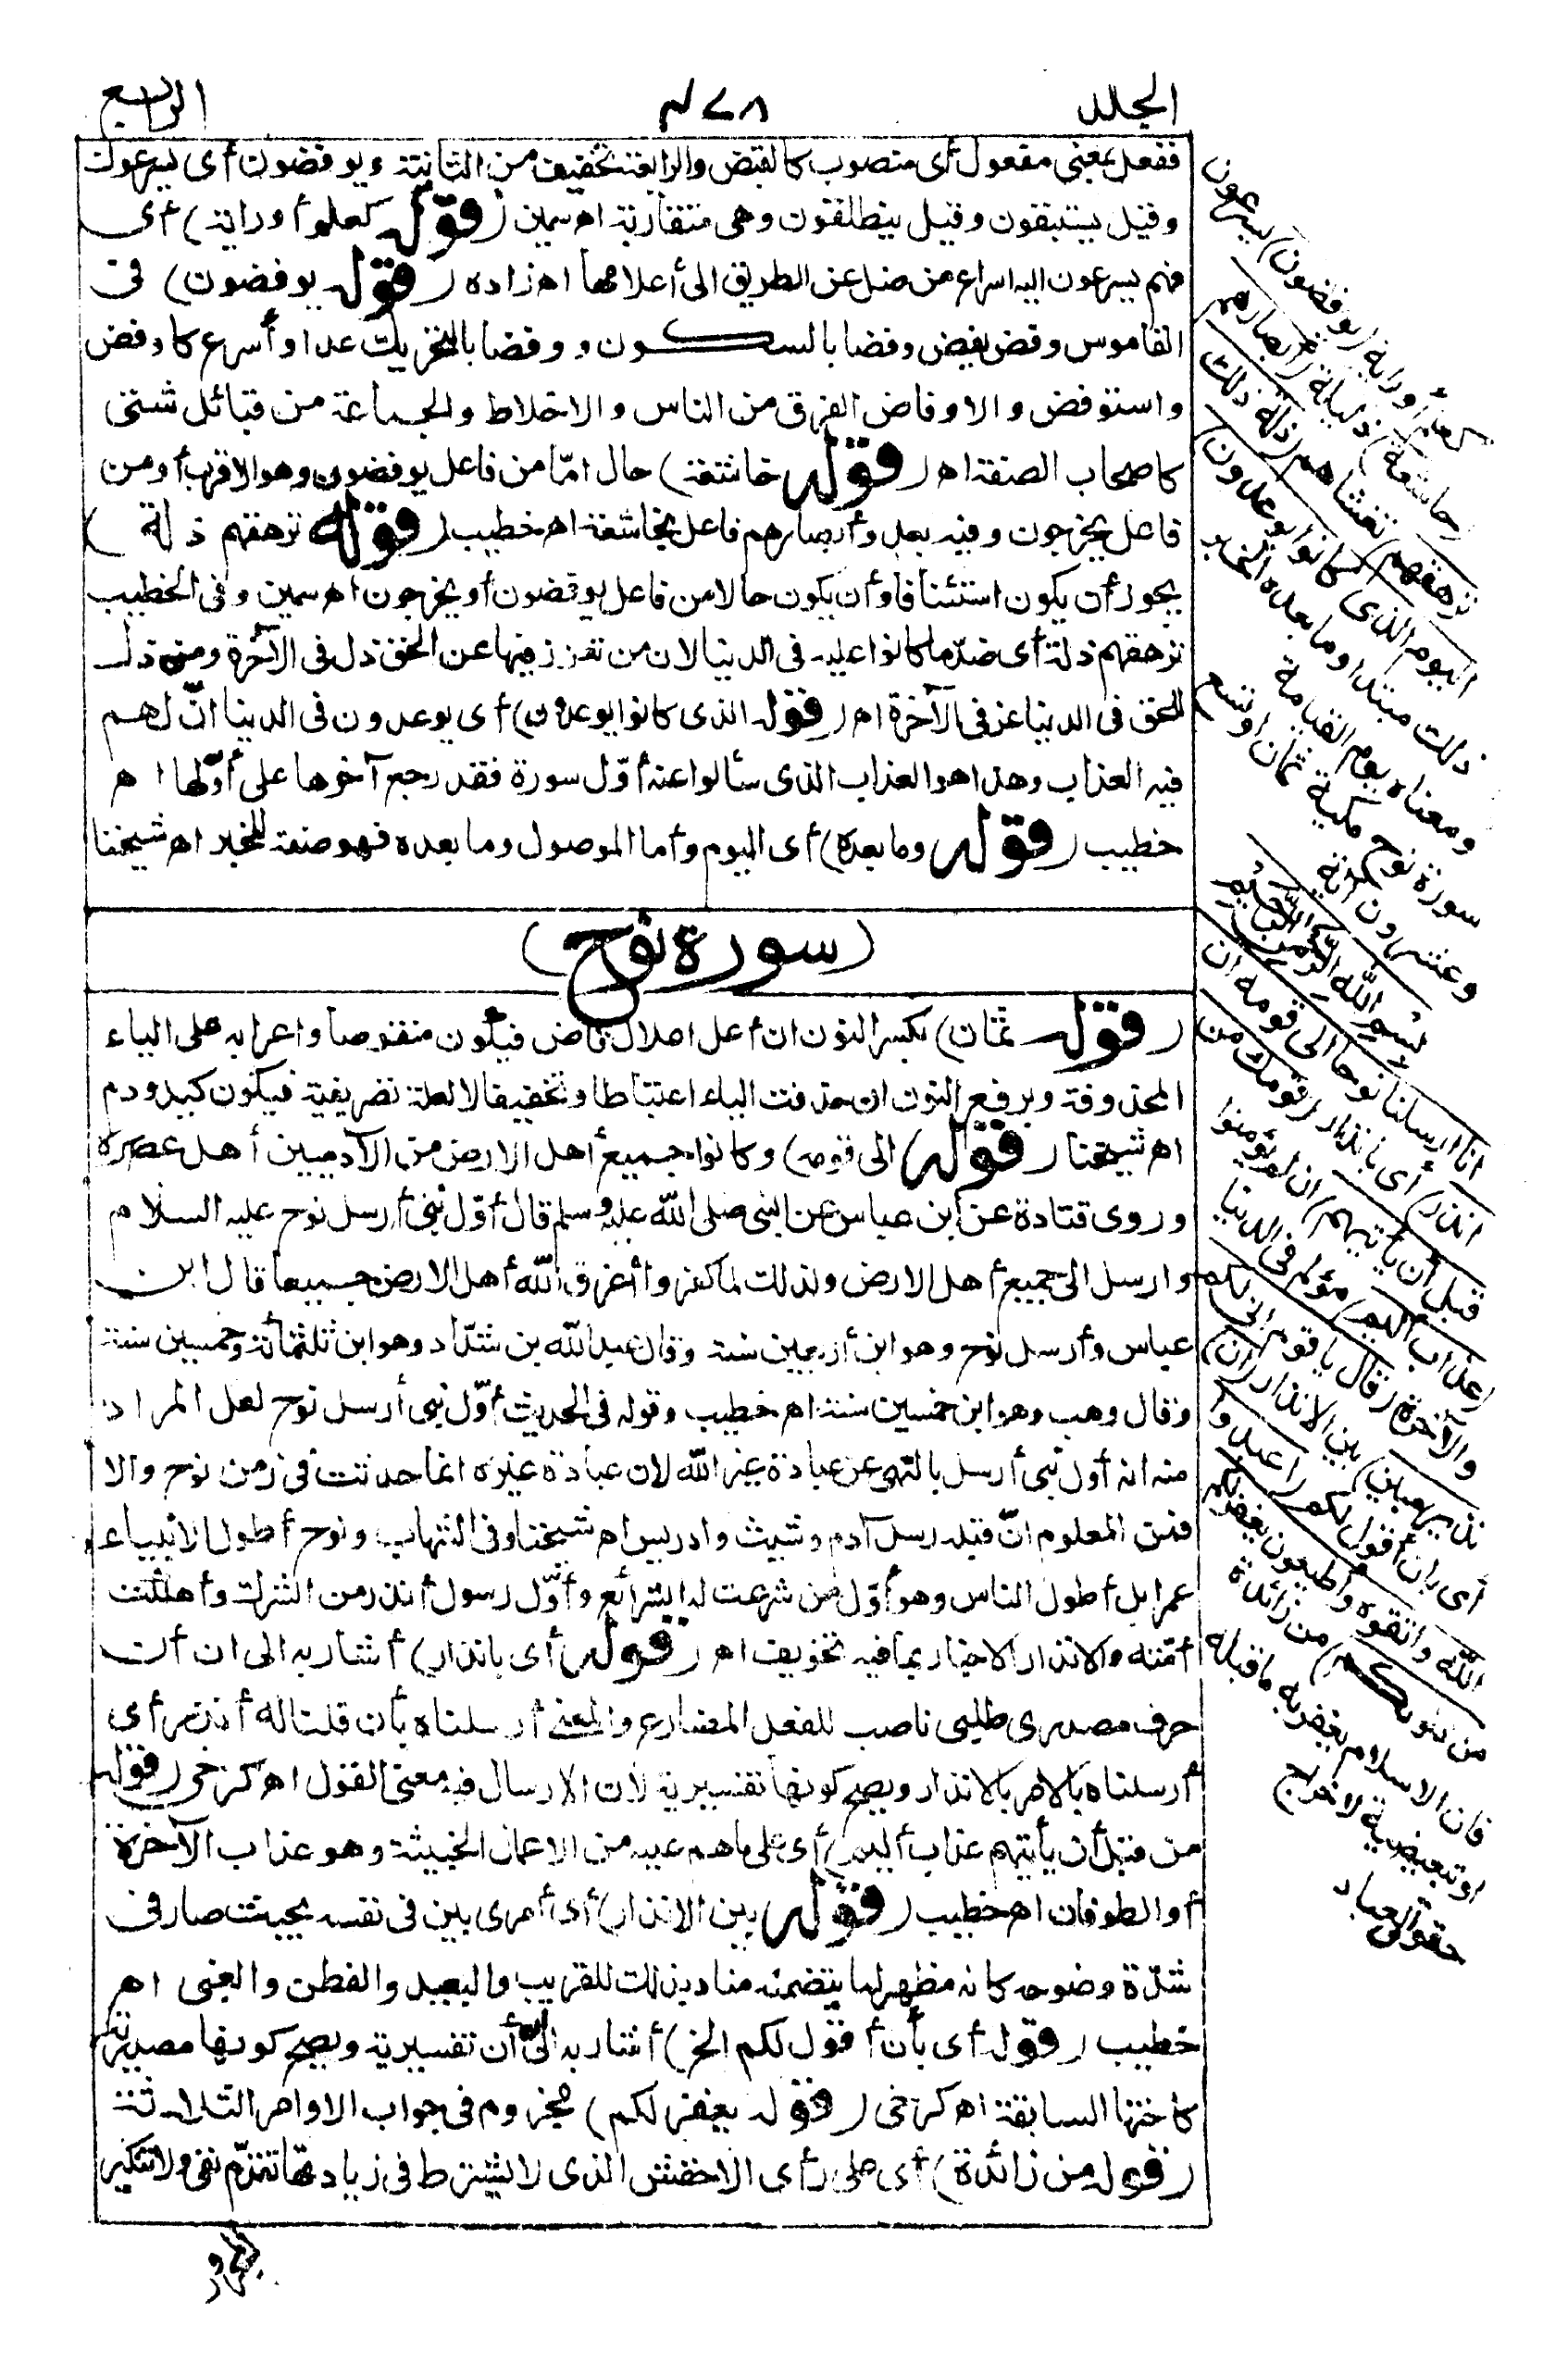 المجلد
٤٧٨
الرابع
ففعل بمعنى مفعول أى منصوب كالقبض والرابعة تخفيف من الثانية ويوفضون أى يسرعون
وقيل يستبقون وقيل ينطلقون وهى متقاربة اه سمين (قوله كعلم أو راية) أى
فهم يسرعون اليه اسراع من ضل عن الطريق الى أعلامها اه زاده (قوله يوفضون) فى
القاموس وفض يفض وفضا بالسكون ووفضا بالتحريك عدا وأسرع كاوفض
واستوفض والاوفاض الفرق من الناس والاخلاط والجماعة من قبائل شتى
كاصحاب الصفة اه (قوله خاشعة) حال امّا من فاعل يوفضون وهو الاقرب أو من
فاعل يخرجون وفيه بعد وأبصارهم فاعل بخاشعة اه خطيب (قوله ترهقهم ذلة)
يجوز أن يكون استئنافا وأن يكون حالا من فاعل يوفضون أو يخرجون اه سمين وفى الخطيب
ترهقهم ذلة أى ضدّ ما كانوا عليه فى الدنيا لان من تعزز فيها عن الحق ذل فى الآخرة ومن ذل
للحق فى الدنيا عز فى الآخرة اه (قوله الذى كانوا يوعدون) أى يوعدون فى الدنيا انّ لهم
فيه العذاب وهذا هو العذاب الذى سألوا عنه أوّل سورة فقد رجع آخرها على أوّلها اه
خطيب (قوله وما بعده) أى اليوم وأما الموصول وما بعده فهو صفة للخبر اه شيخنا
(سورة نوح)
(قوله ثمان) بكسر النون ان أعل اعلال قاض فيكون منقوصا واعرابه على الياء
المحذوفة وبرفع النون ان حذفت الياء اعتباطا وتخفيفا لا لعلة تصريفية فيكون كيد ودم
اه شيخنا (قوله الى قومه) وكانوا جميع أهل الارض من الآدميين أهل عصره
وروى قتادة عن ابن عباس عن النبى صلى الله عليه وسلم قال أوّل نبى أرسل نوح عليه السلام
وارسل الى جميع أهل الارض ولذلك لما كفروا أغرق الله أهل الارض جميعا قال ابن
عباس وأرسل نوح وهو ابن أربعين سنة وقال عبد الله بن شدّاد وهو ابن ثلثمائة وخمسين سنة
وقال وهب وهو ابن خمسين سنة اه خطيب وقوله فى الحديث أوّل نبى أرسل نوح لعل المراد
منه انه أول نبى أرسل بالنهى عن عبادة غير الله لان عبادة غيره انما حدثت فى زمن نوح والا
فمن المعلوم انّ قبله رسل آدم وشيث وادريس اه شيخنا وفى الشهاب ونوح أطول الانبياء
عمرا بل أطول الناس وهو أوّل من شرعت له الشرائع وأوّل رسول أنذر من الشرك وأهلكت
أمّته والانذار الاخبار بما فيه تخويف اه (قوله أى بانذار) أشار به الى ان أن
حرف مصدرى طلبى ناصب للفعل المضارع والمعنى أرسلناه بأن قلنا له أنذر أى
أرسلناه بالامر بالانذار ويصح كونها تفسيرية لان الارسال فيه معنى القول اه كرخى (قوله
من قبل أن يأتيهم عذاب أليم) أى على ما هم عليه من الاعمال الخبيثة وهو عذاب الآخرة
أو الطوفان اه خطيب (قوله بين الانذار) أى أمرى بين فى نفسه بحيث صار فى
شدّة وضوحه كانه مظهر لما يتضمنه مناد بذلك للقريب والبعيد والفطن والغبى اه
خطيب (قوله أى بأن أقول لكم الخ) أشار به الى أن أن تفسيرية ويصح كونها مصدرية
كاختها السابقة اه كرخى (قوله يغفر لكم) مجزوم فى جواب الاوامر الثلاثة
(قوله من زائدة) أى على رأى الاخفش الذى لا يشترط فى زيادتها تقدّم نفى ولا تنكير
يسرعون
كعلم أو راية (يوفضون)
(خاشعة) ذليلة (أبصارهم
ترهقهم) تغشاهم (ذلة ذلك
اليوم الذى كانوا يوعدون)
ذلك مبتدا وما بعده الخبر
ومعناه يوم القيامة
سورة نوح مكية ثمان أو تسع
وعشرون آية
بسم الله الرحمن الرحيم
(انا ارسلنا نوحا الى قومه ان
انذر) أى بانذار (قومك من
قبل أن يأتيهم) ان لم يؤمنوا
(عذاب أليم) مؤلم فى الدنيا
والآخرة (قال يا قوم انى لكم
نذير مبين) بين الانذار (ان)
أى بان أقول لكم (اعبدوا
الله واتقوه وأطيعون يغفر لكم
من ذنوبكم) من زائدة
فان الاسلام يغفر به ما قبله
او تبعيضية لاخراج
حقوق العباد